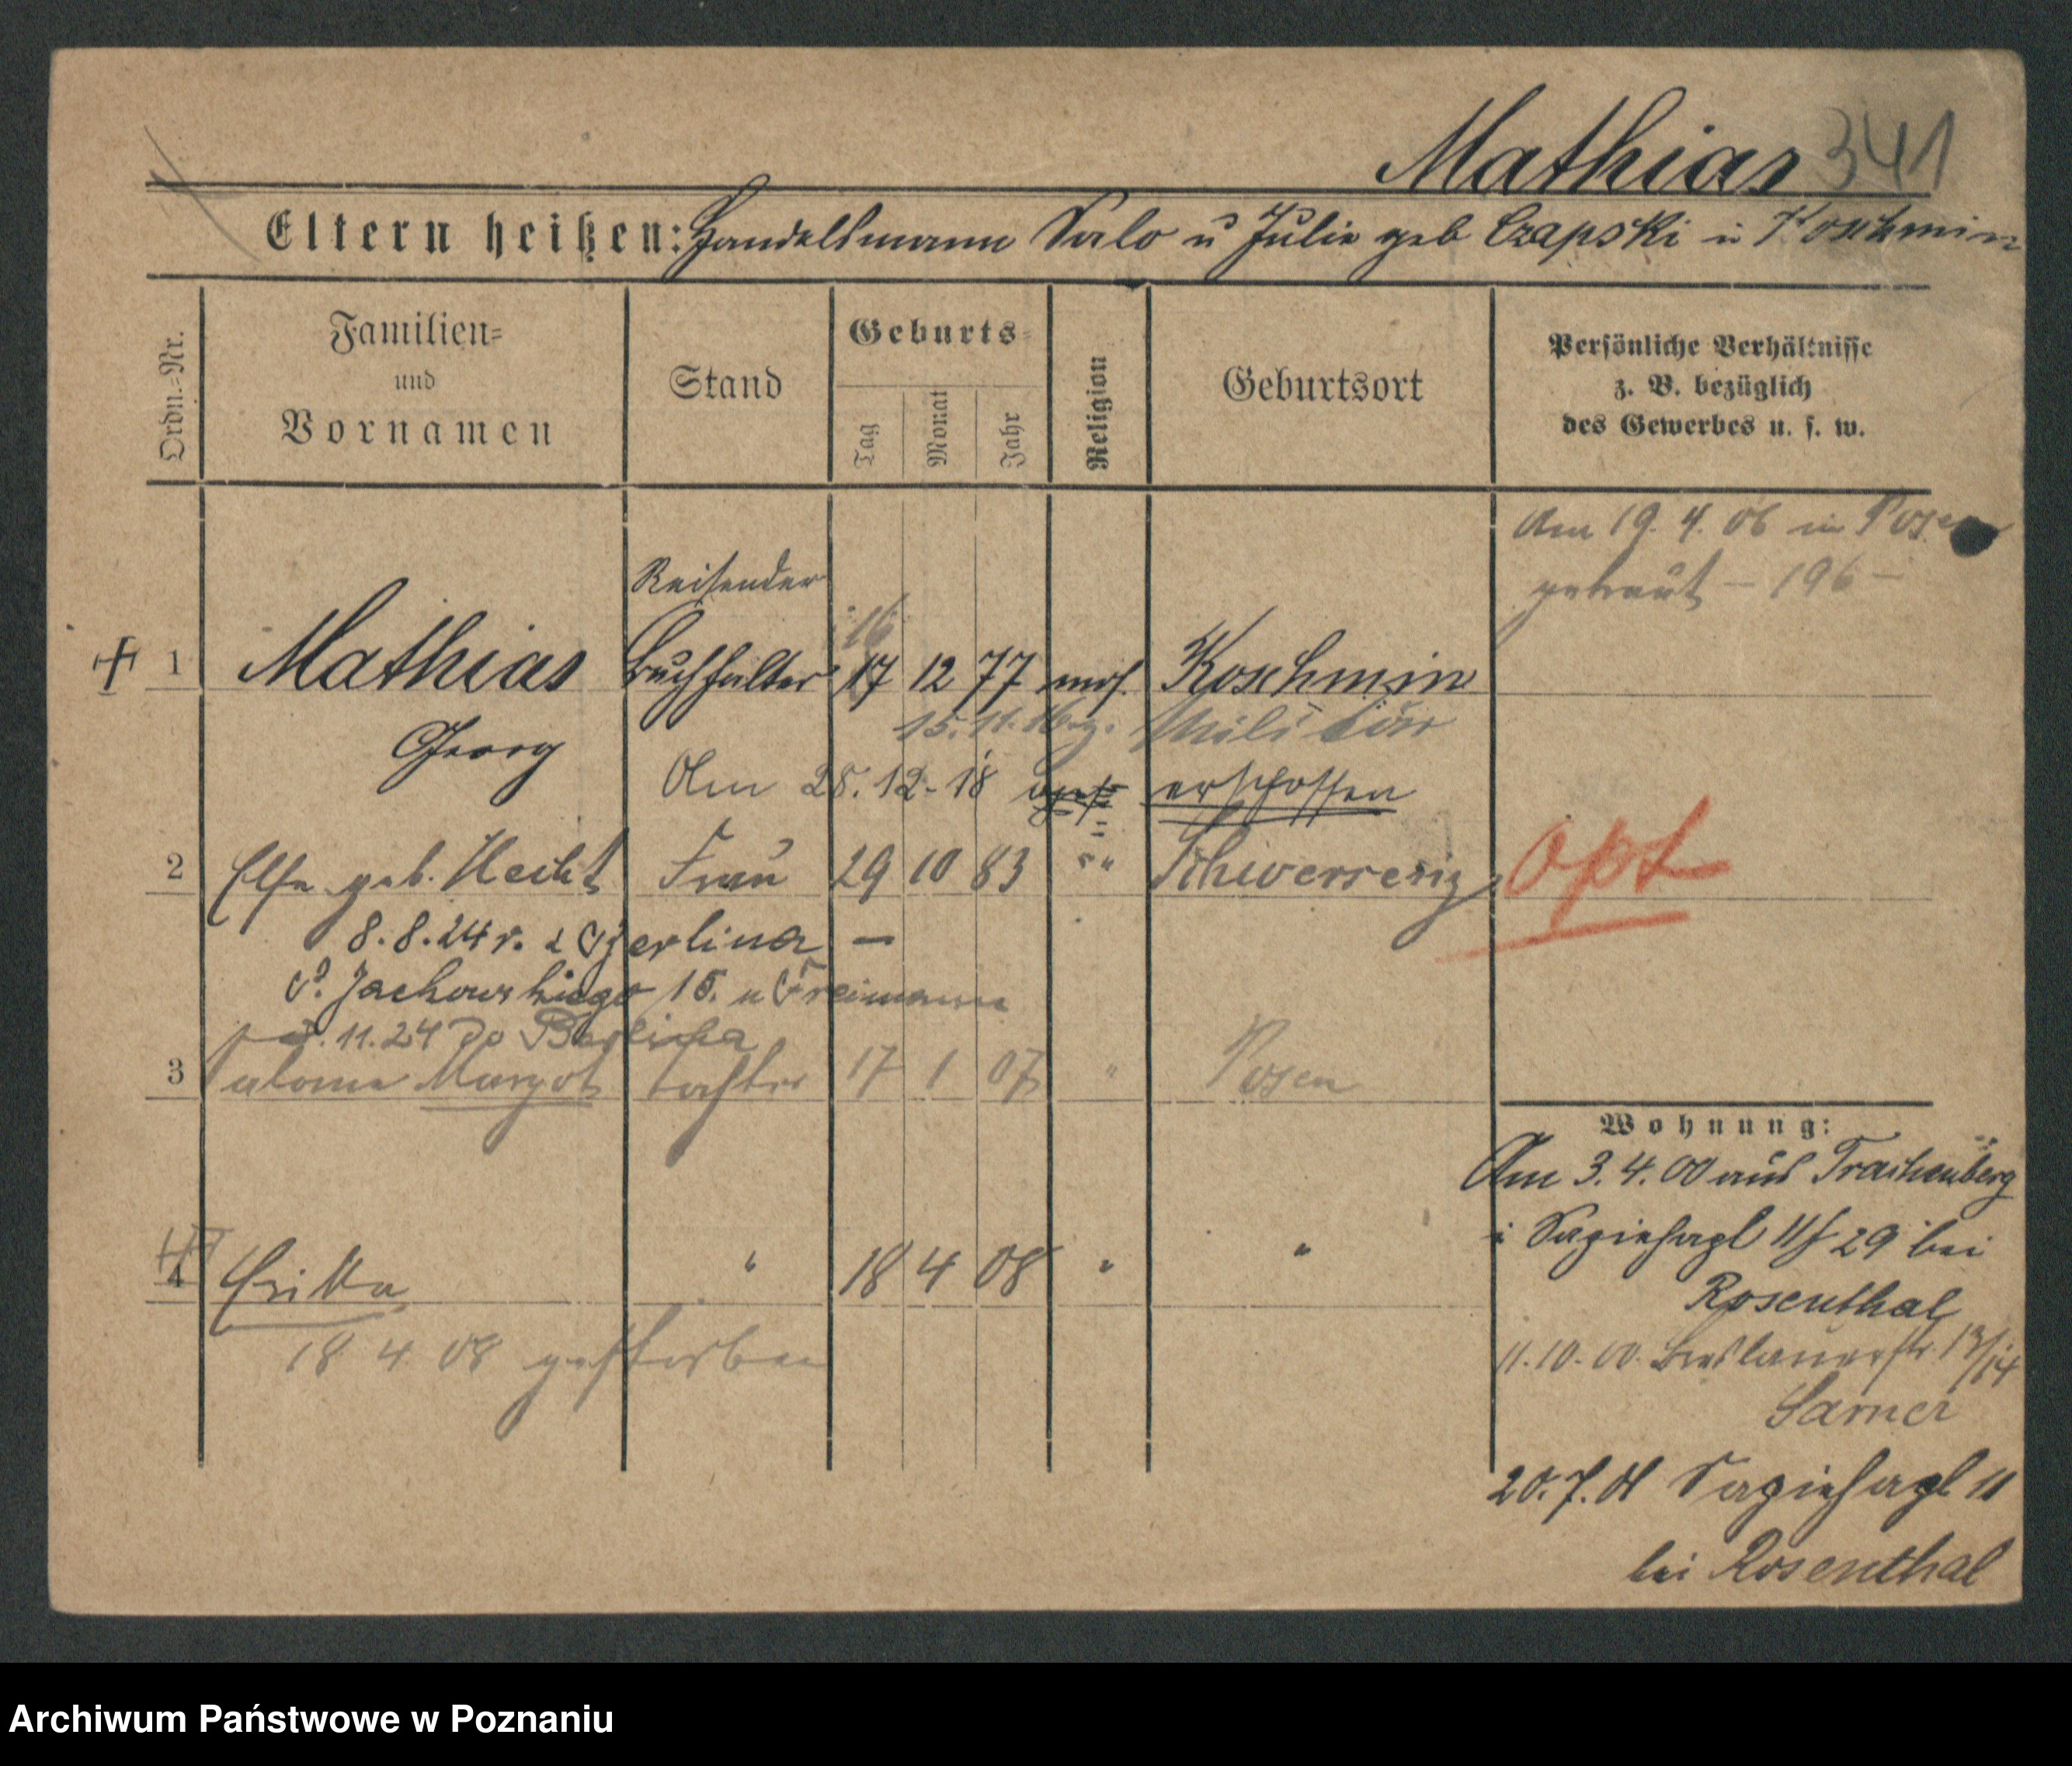 Mathias 341
Eltern heißen: Handelsmann Salo u Julie geb Czapski in Koschmin
Ordn.-Nr.
Familien-
und
Vornamen
Stand
Geburts-
Tag
Monat
Jahr
Religion
Geburtsort
Persönliche Verhältnisse
z. B. bezüglich
des Gewerbes u. s. w.
Am 19. 4. 06 in Posen
getraut – 196 –
Reisender
16
1 Mathias Buchhalter 17 12 77 mos. Koschmin
15. 11. Militär
Georg
Am 28. 12. 18 erschossen
2 Else geb. Hecht Frau 29 10 83 " Schwersenz
opt
8. 8. 24 r. z Berlina –
Jackowskiego 15. u Freimann
11. 24 do Berlina
3 Margot Tochter 17 1 07 " Posen
Wohnung:
Am 3. 4. 00 aus Trachenberg
i Sapiehapl 11 29 bei
Rosenthal
4 Erika " 18 4 08 " "
18 4 08 gestorben
11. 10. 00. Breslauerstr 13/14
Sarner
20. 7. 01 Sapiehapl 11
bei Rosenthal
Archiwum Państwowe w Poznaniu